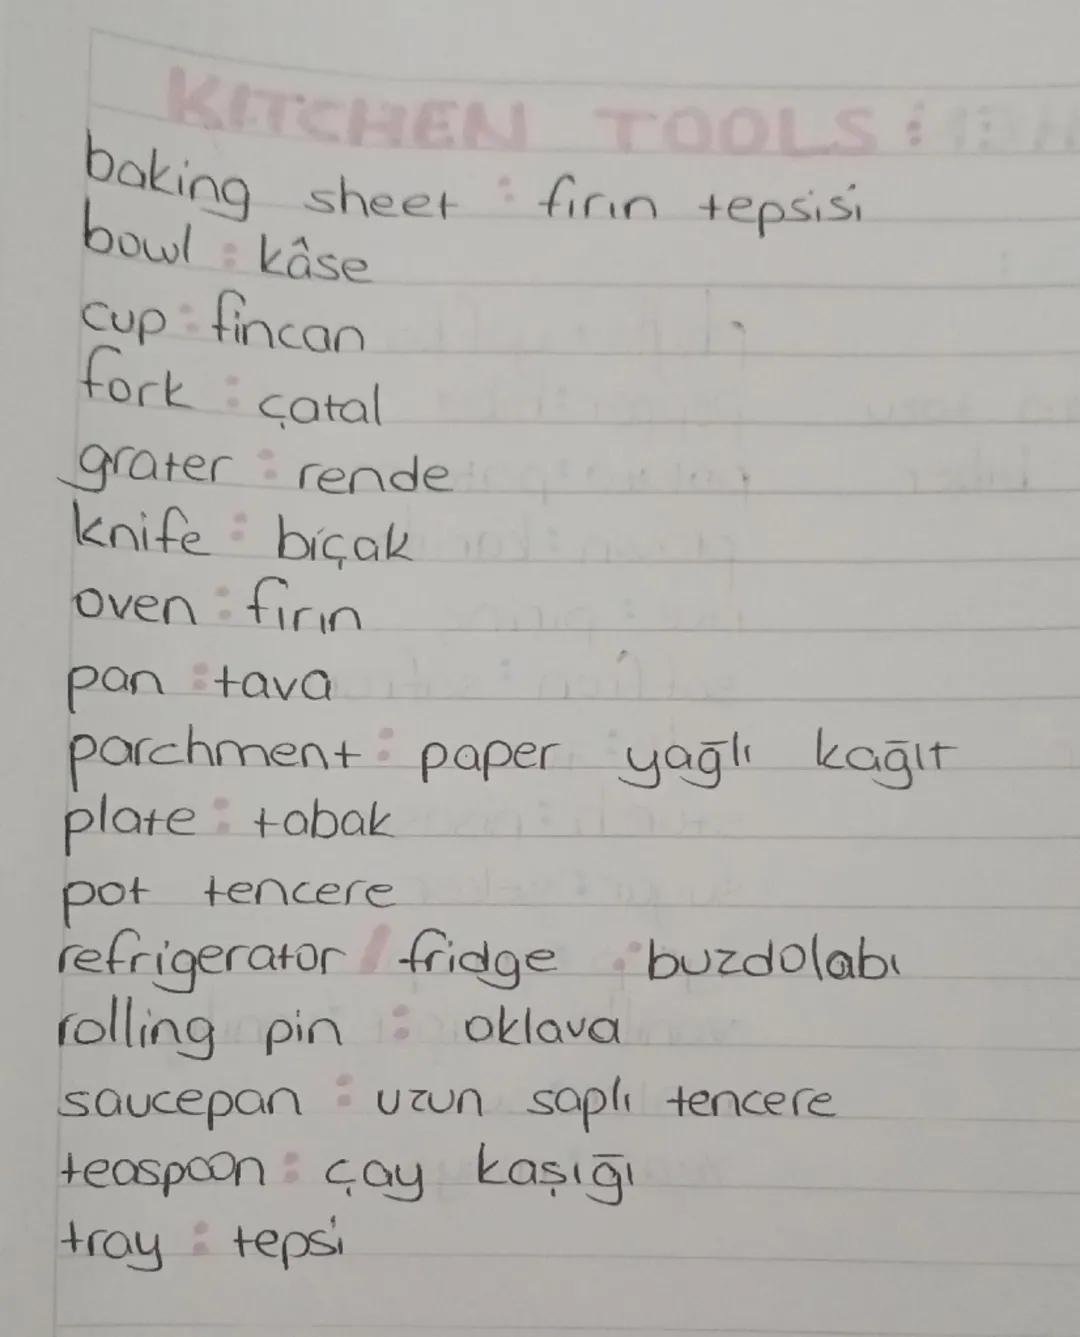 KITCHEN TOOLS :
baking sheet : fırın tepsisi
bowl : kâse
cup : fincan
fork : çatal
grater : rende
knife : bıçak
oven : fırın
pan : tava
parchment : paper yağlı kağıt
plate : tabak
pot tencere
refrigerator / fridge : buzdolabı
rolling pin : oklava
saucepan : uzun saplı tencere
teaspoon : çay kaşığı
tray : tepsi